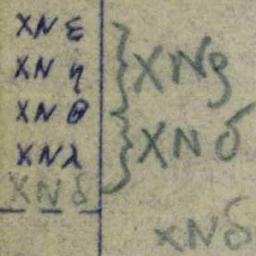 XN ε
XN η
XN θ
XN λ
XN δ
XN ϱ
XN δ
XN δ